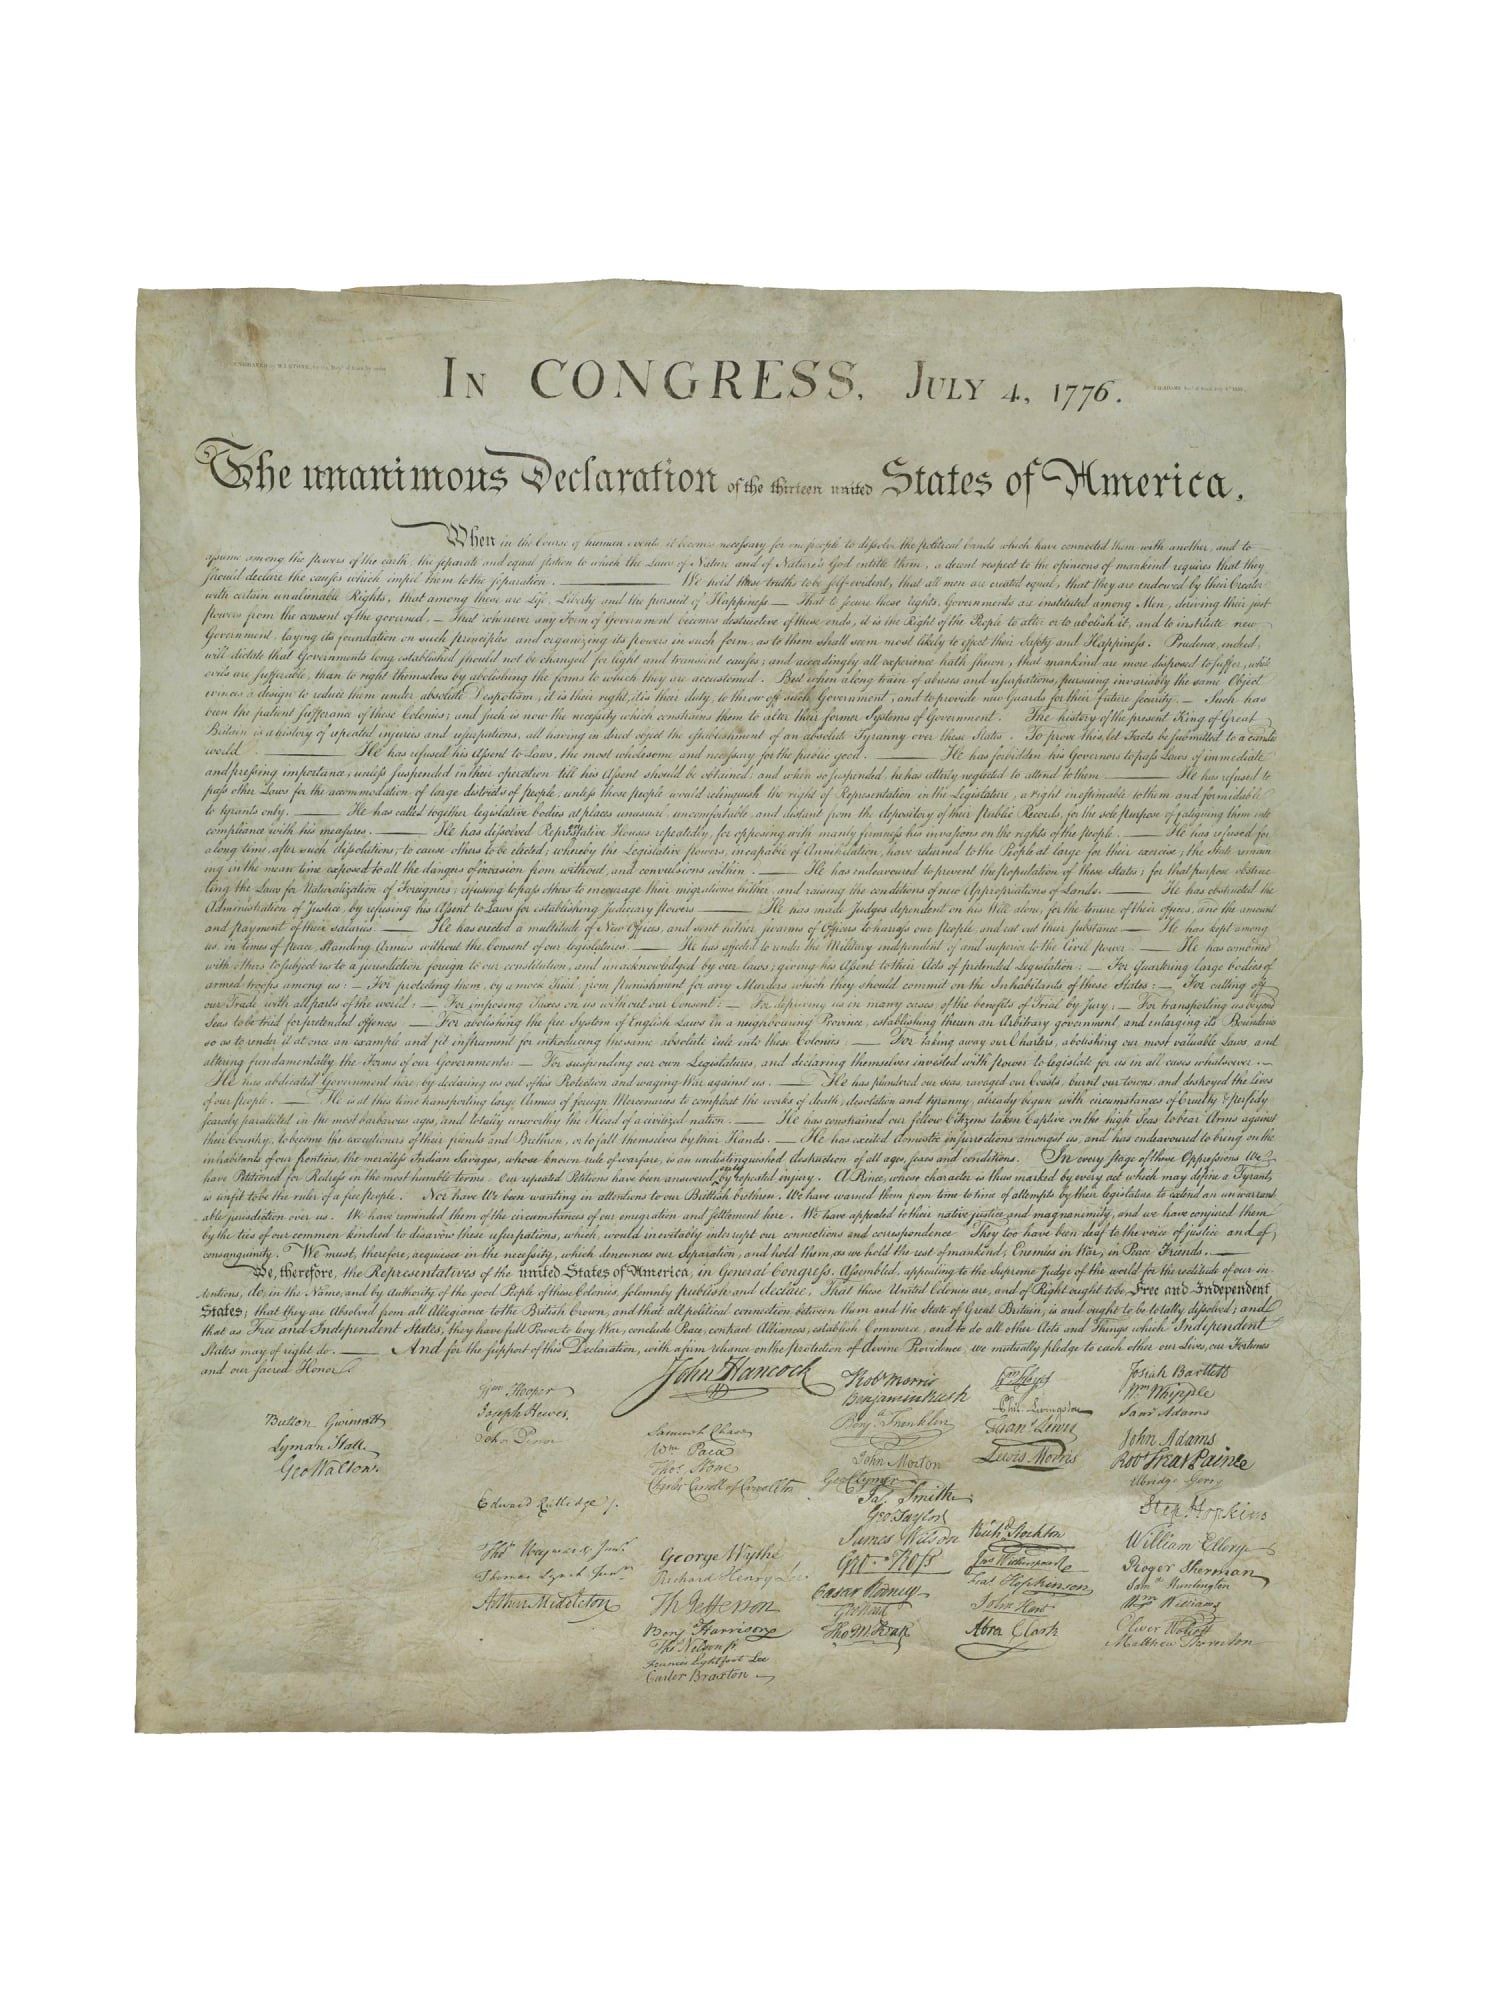 ENGRAVED by W.I.STONE, for the Dept. of State, by order
J.Q.ADAMS Sect. of State July 4th 1823.
In CONGRESS, July 4, 1776.
The unanimous Declaration of the thirteen united States of America,
When in the Course of human events, it becomes necessary for one people to dissolve the political bands which have connected them with another, and to
assume among the powers of the earth, the separate and equal station to which the Laws of Nature and of Nature's God entitle them, a decent respect to the opinions of mankind requires that they
should declare the causes which impel them to the separation. — We hold these truths to be self-evident, that all men are created equal, that they are endowed by their Creator
with certain unalienable Rights, that among these are Life, Liberty and the pursuit of Happiness — That to secure these rights, Governments are instituted among Men, deriving their just
powers from the consent of the governed, — That whenever any Form of Government becomes destructive of these ends, it is the Right of the People to alter or to abolish it, and to institute new
Government, laying its foundation on such principles and organizing its powers in such form, as to them shall seem most likely to effect their Safety and Happiness. Prudence, indeed,
will dictate that Governments long established should not be changed for light and transient causes; and accordingly all experience hath shewn, that mankind are more disposed to suffer, while
evils are sufferable, than to right themselves by abolishing the forms to which they are accustomed. But when a long train of abuses and usurpations, pursuing invariably the same Object
evinces a design to reduce them under absolute Despotism, it is their right, it is their duty, to throw off such Government, and to provide new Guards for their future security. — Such has
been the patient sufferance of these Colonies; and such is now the necessity which constrains them to alter their former Systems of Government. The history of the present King of Great
Britain is a history of repeated injuries and usurpations, all having in direct object the establishment of an absolute Tyranny over these States. To prove this, let Facts be submitted to a candid
world. — He has refused his Assent to Laws, the most wholesome and necessary for the public good. — He has forbidden his Governors to pass Laws of immediate
and pressing importance, unless suspended in their operation till his Assent should be obtained; and when so suspended, he has utterly neglected to attend to them. — He has refused to
pass other Laws for the accommodation of large districts of people, unless those people would relinquish the right of Representation in the Legislature, a right inestimable to them and formidable
to tyrants only. — He has called together legislative bodies at places unusual, uncomfortable, and distant from the depository of their Public Records, for the sole purpose of fatiguing them into
compliance with his measures. — He has dissolved Representative Houses repeatedly, for opposing with manly firmness his invasions on the rights of the people. — He has refused for
a long time, after such dissolutions, to cause others to be elected; whereby the Legislative powers, incapable of Annihilation, have returned to the People at large for their exercise; the State remain
ing in the mean time exposed to all the dangers of invasion from without, and convulsions within. — He has endeavoured to prevent the population of these States; for that purpose obstruc
ting the Laws for Naturalization of Foreigners; refusing to pass others to encourage their migrations hither, and raising the conditions of new Appropriations of Lands. — He has obstructed the
Administration of Justice, by refusing his Assent to Laws for establishing Judiciary powers — He has made Judges dependent on his Will alone, for the tenure of their offices, and the amount
and payment of their salaries. — He has erected a multitude of New Offices, and sent hither swarms of Officers to harrass our people, and eat out their substance. — He has kept among
us, in times of peace, Standing Armies without the Consent of our legislatures. — He has affected to render the Military independent of and superior to the Civil power. — He has combined
with others to subject us to a jurisdiction foreign to our constitution, and unacknowledged by our laws; giving his Assent to their Acts of pretended Legislation: — For Quartering large bodies of
armed troops among us: — For protecting them, by a mock Trial, from punishment for any Murders which they should commit on the Inhabitants of these States: — For cutting off
our Trade with all parts of the world: — For imposing Taxes on us without our Consent: — For depriving us in many cases, of the benefits of Trial by Jury: — For transporting us beyond
Seas to be tried for pretended offences — For abolishing the free System of English Laws in a neighbouring Province, establishing therein an Arbitrary government, and enlarging its Boundaries
so as to render it at once an example and fit instrument for introducing the same absolute rule into these Colonies: — For taking away our Charters, abolishing our most valuable Laws, and
altering fundamentally the Forms of our Governments: — For suspending our own Legislatures, and declaring themselves invested with power to legislate for us in all cases whatsoever. —
He has abdicated Government here, by declaring us out of his Protection and waging War against us. — He has plundered our seas, ravaged our Coasts, burnt our towns, and destroyed the lives
of our people. — He is at this time transporting large Armies of foreign Mercenaries to compleat the works of death, desolation and tyranny, already begun with circumstances of Cruelty & perfidy
scarcely paralleled in the most barbarous ages, and totally unworthy the Head of a civilized nation. — He has constrained our fellow Citizens taken Captive on the high Seas to bear Arms against
their Country, to become the executioners of their friends and Brethren, or to fall themselves by their Hands. — He has excited domestic insurrections amongst us, and has endeavoured to bring on the
inhabitants of our frontiers, the merciless Indian Savages, whose known rule of warfare, is an undistinguished destruction of all ages, sexes and conditions. In every stage of these Oppressions We
have Petitioned for Redress in the most humble terms: Our repeated Petitions have been answered only by repeated injury. A Prince, whose character is thus marked by every act which may define a Tyrant,
is unfit to be the ruler of a free people. Nor have We been wanting in attentions to our Brittish brethren. We have warned them from time to time of attempts by their legislature to extend an unwarrant
able jurisdiction over us. We have reminded them of the circumstances of our emigration and settlement here. We have appealed to their native justice and magnanimity, and we have conjured them
by the ties of our common kindred to disavow these usurpations, which, would inevitably interrupt our connections and correspondence They too have been deaf to the voice of justice and of
consanguinity. We must, therefore, acquiesce in the necessity, which denounces our Separation, and hold them, as we hold the rest of mankind, Enemies in War, in Peace Friends. —
We, therefore, the Representatives of the united States of America, in General Congress, Assembled, appealing to the Supreme Judge of the world for the rectitude of our in-
tentions, do, in the Name, and by Authority of the good People of these Colonies, solemnly publish and declare, That these United Colonies are, and of Right ought to be Free and Independent
States; that they are Absolved from all Allegiance to the British Crown, and that all political connection between them and the State of Great Britain, is and ought to be totally dissolved; and
that as Free and Independent States, they have full Power to levy War, conclude Peace, contract Alliances, establish Commerce, and to do all other Acts and Things which Independent
States may of right do. — And for the support of this Declaration, with a firm reliance on the protection of divine Providence, we mutually pledge to each other our Lives, our Fortunes
and our sacred Honor.
Button Gwinnett
Lyman Hall
Geo Walton.
Wm Hooper
Joseph Hewes,
John Penn
Edward Rutledge /.
Thos Heyward Junr.
Thomas Lynch Junr.
Arthur Middleton
John Hancock
Samuel Chase
Wm. Paca
Thos. Stone
Charles Carroll of Carrollton
George Wythe
Richard Henry Lee
Th Jefferson
Benj Harrison
Thos Nelson jr.
Francis Lightfoot Lee
Carter Braxton
Robt Morris
Benjamin Rush
Benja. Franklin
John Morton
Geo Clymer
Jas. Smith
Geo. Taylor
James Wilson
Geo. Ross
Caesar Rodney
Geo Read
Tho M:Kean
Wm Floyd
Phil. Livingston
Frans. Lewis
Lewis Morris
Richd. Stockton
Jno Witherspoon
Fras. Hopkinson
John Hart
Abra Clark
Josiah Bartlett
Wm. Whipple
Saml Adams
John Adams
Robt Treat Paine
Elbridge Gerry
Step. Hopkins
William Ellery
Roger Sherman
Saml Huntington
Wm. Williams
Oliver Wolcott
Matthew Thornton